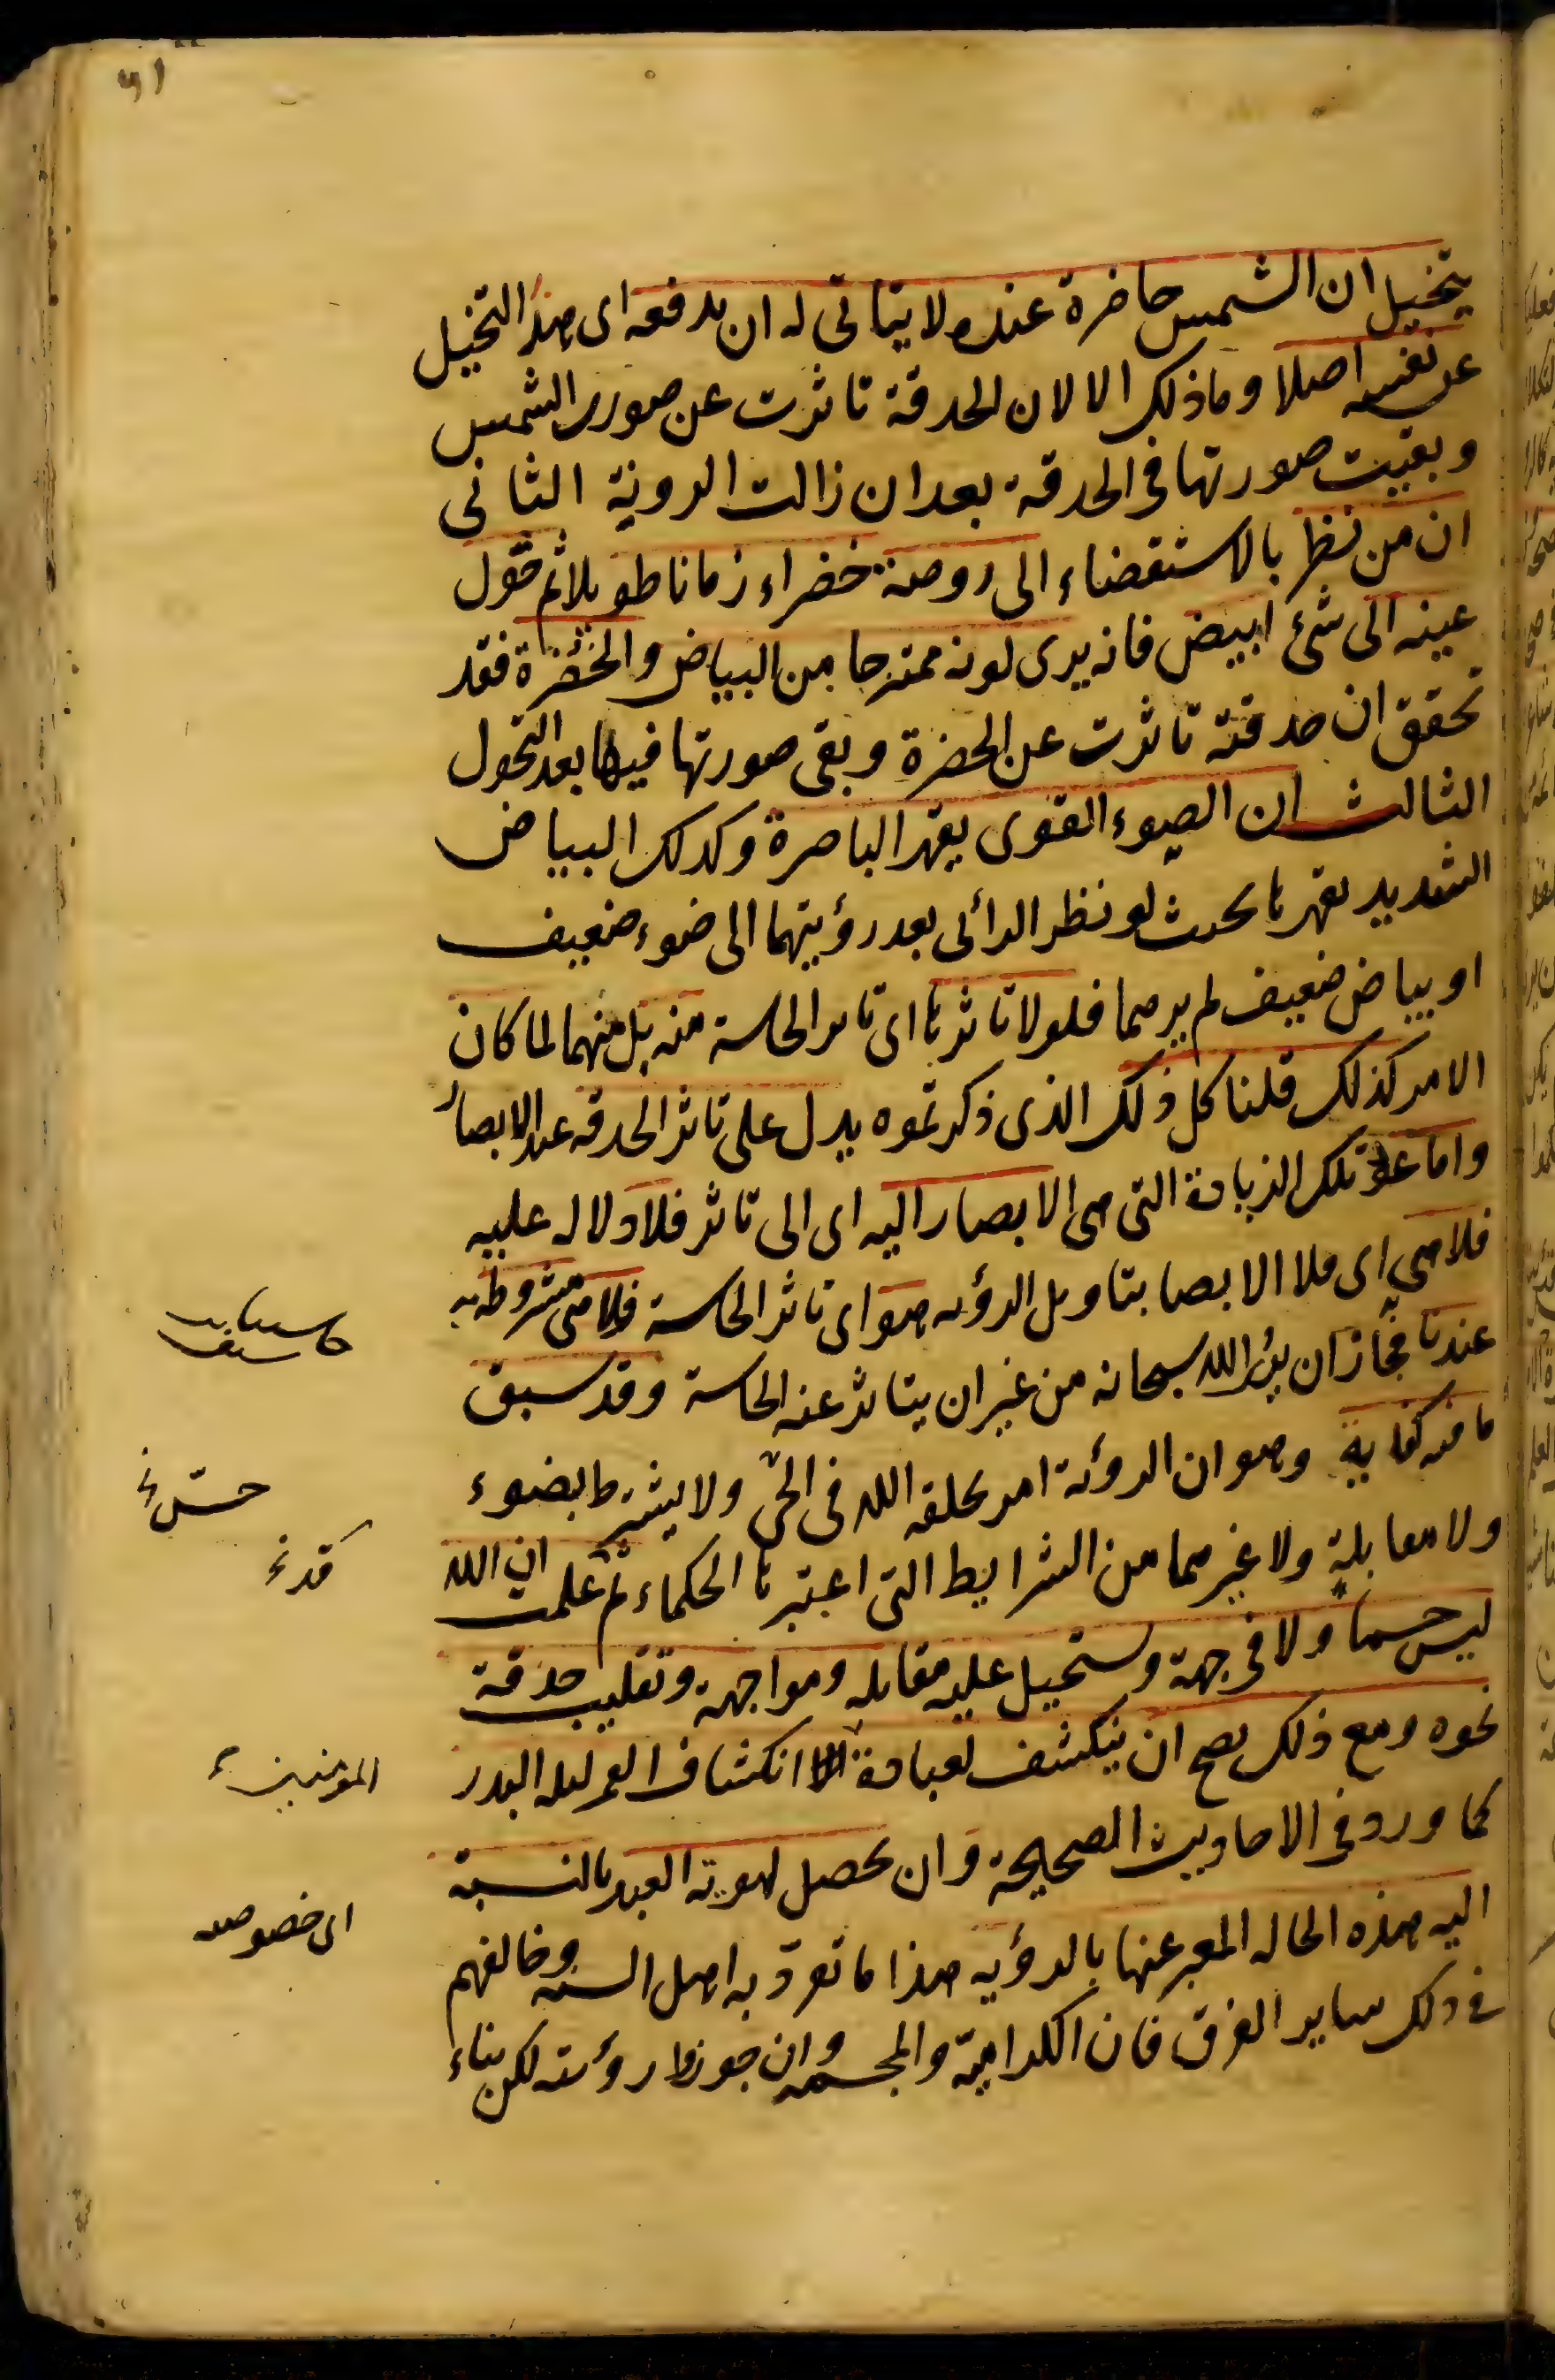 يتخيل ان الشمس حاضرة عنده ولا يتاتى له ان يدفعه اى هذا التخيل
عن نفسه اصلا وما ذلك الا لان الحدقة تاثرت عن صورة الشمس
وبقيت صورتها فى الحدقة بعد ان زالت الرؤية الثانى
ان من نظر بالاستقضاء الى روضة خضراء زمانا طويلا ثم حول
عينه الى شئ ابيض فانه يرى لونه ممتزجا من البياض والخضرة فقد
تحقق ان حدقته تاثرت عن الخضرة وبقى صورتها فيها بعد التحول
الثالث ان الضوء القوى يقهر الباصرة وكذلك البياض
الشديد يقهرها بحيث لو نظر الرائى بعد رؤيتهما الى ضوء ضعيف
او بياض ضعيف لم يرهما فلولا تاثرها اى تاثر الحاسة منه بل منهما لما كان
الامر كذلك قلنا كل ذلك الذى ذكرتموه يدل على تاثر الحدقة عند الابصار
واما عود تلك الزيادة التى هى الابصار اليه اى الى تاثر فلا دلالة عليه
فلا هى اى فلا الابصار بتاويل الرؤية هو اى تاثر الحاسة فلا هى مشروطة به
عندنا فجاز ان يرى الله سبحانه من غير ان يتاثر عنه الحاسة وقد سبق
ما فيه كفاية وهو ان الرؤية امر يخلقه الله فى الحى ولا يشترط بضوء
ولا مقابلة ولا غيرهما من الشرايط التى اعتبرها الحكماء ثم علمت ان الله
ليس جسما ولا فى جهة ويستحيل عليه مقابلة ومواجهة وتقليب حدقة
نحوه ومع ذلك يصح ان ينكشف لعباده انكشاف القمر ليلة البدر
المومنين
كما ورد فى الاحاديث الصحيحة وان يحصل لهوية العبد بالنسبة
اى خصوصه
اليه هذه الحالة المعبر عنها بالرؤية هذا ما تفرد به اهل السنة وخالفهم
فى ذلك ساير الفرق فان الكرامية والمجسمة وان جوزوا رؤيته لكن بناء